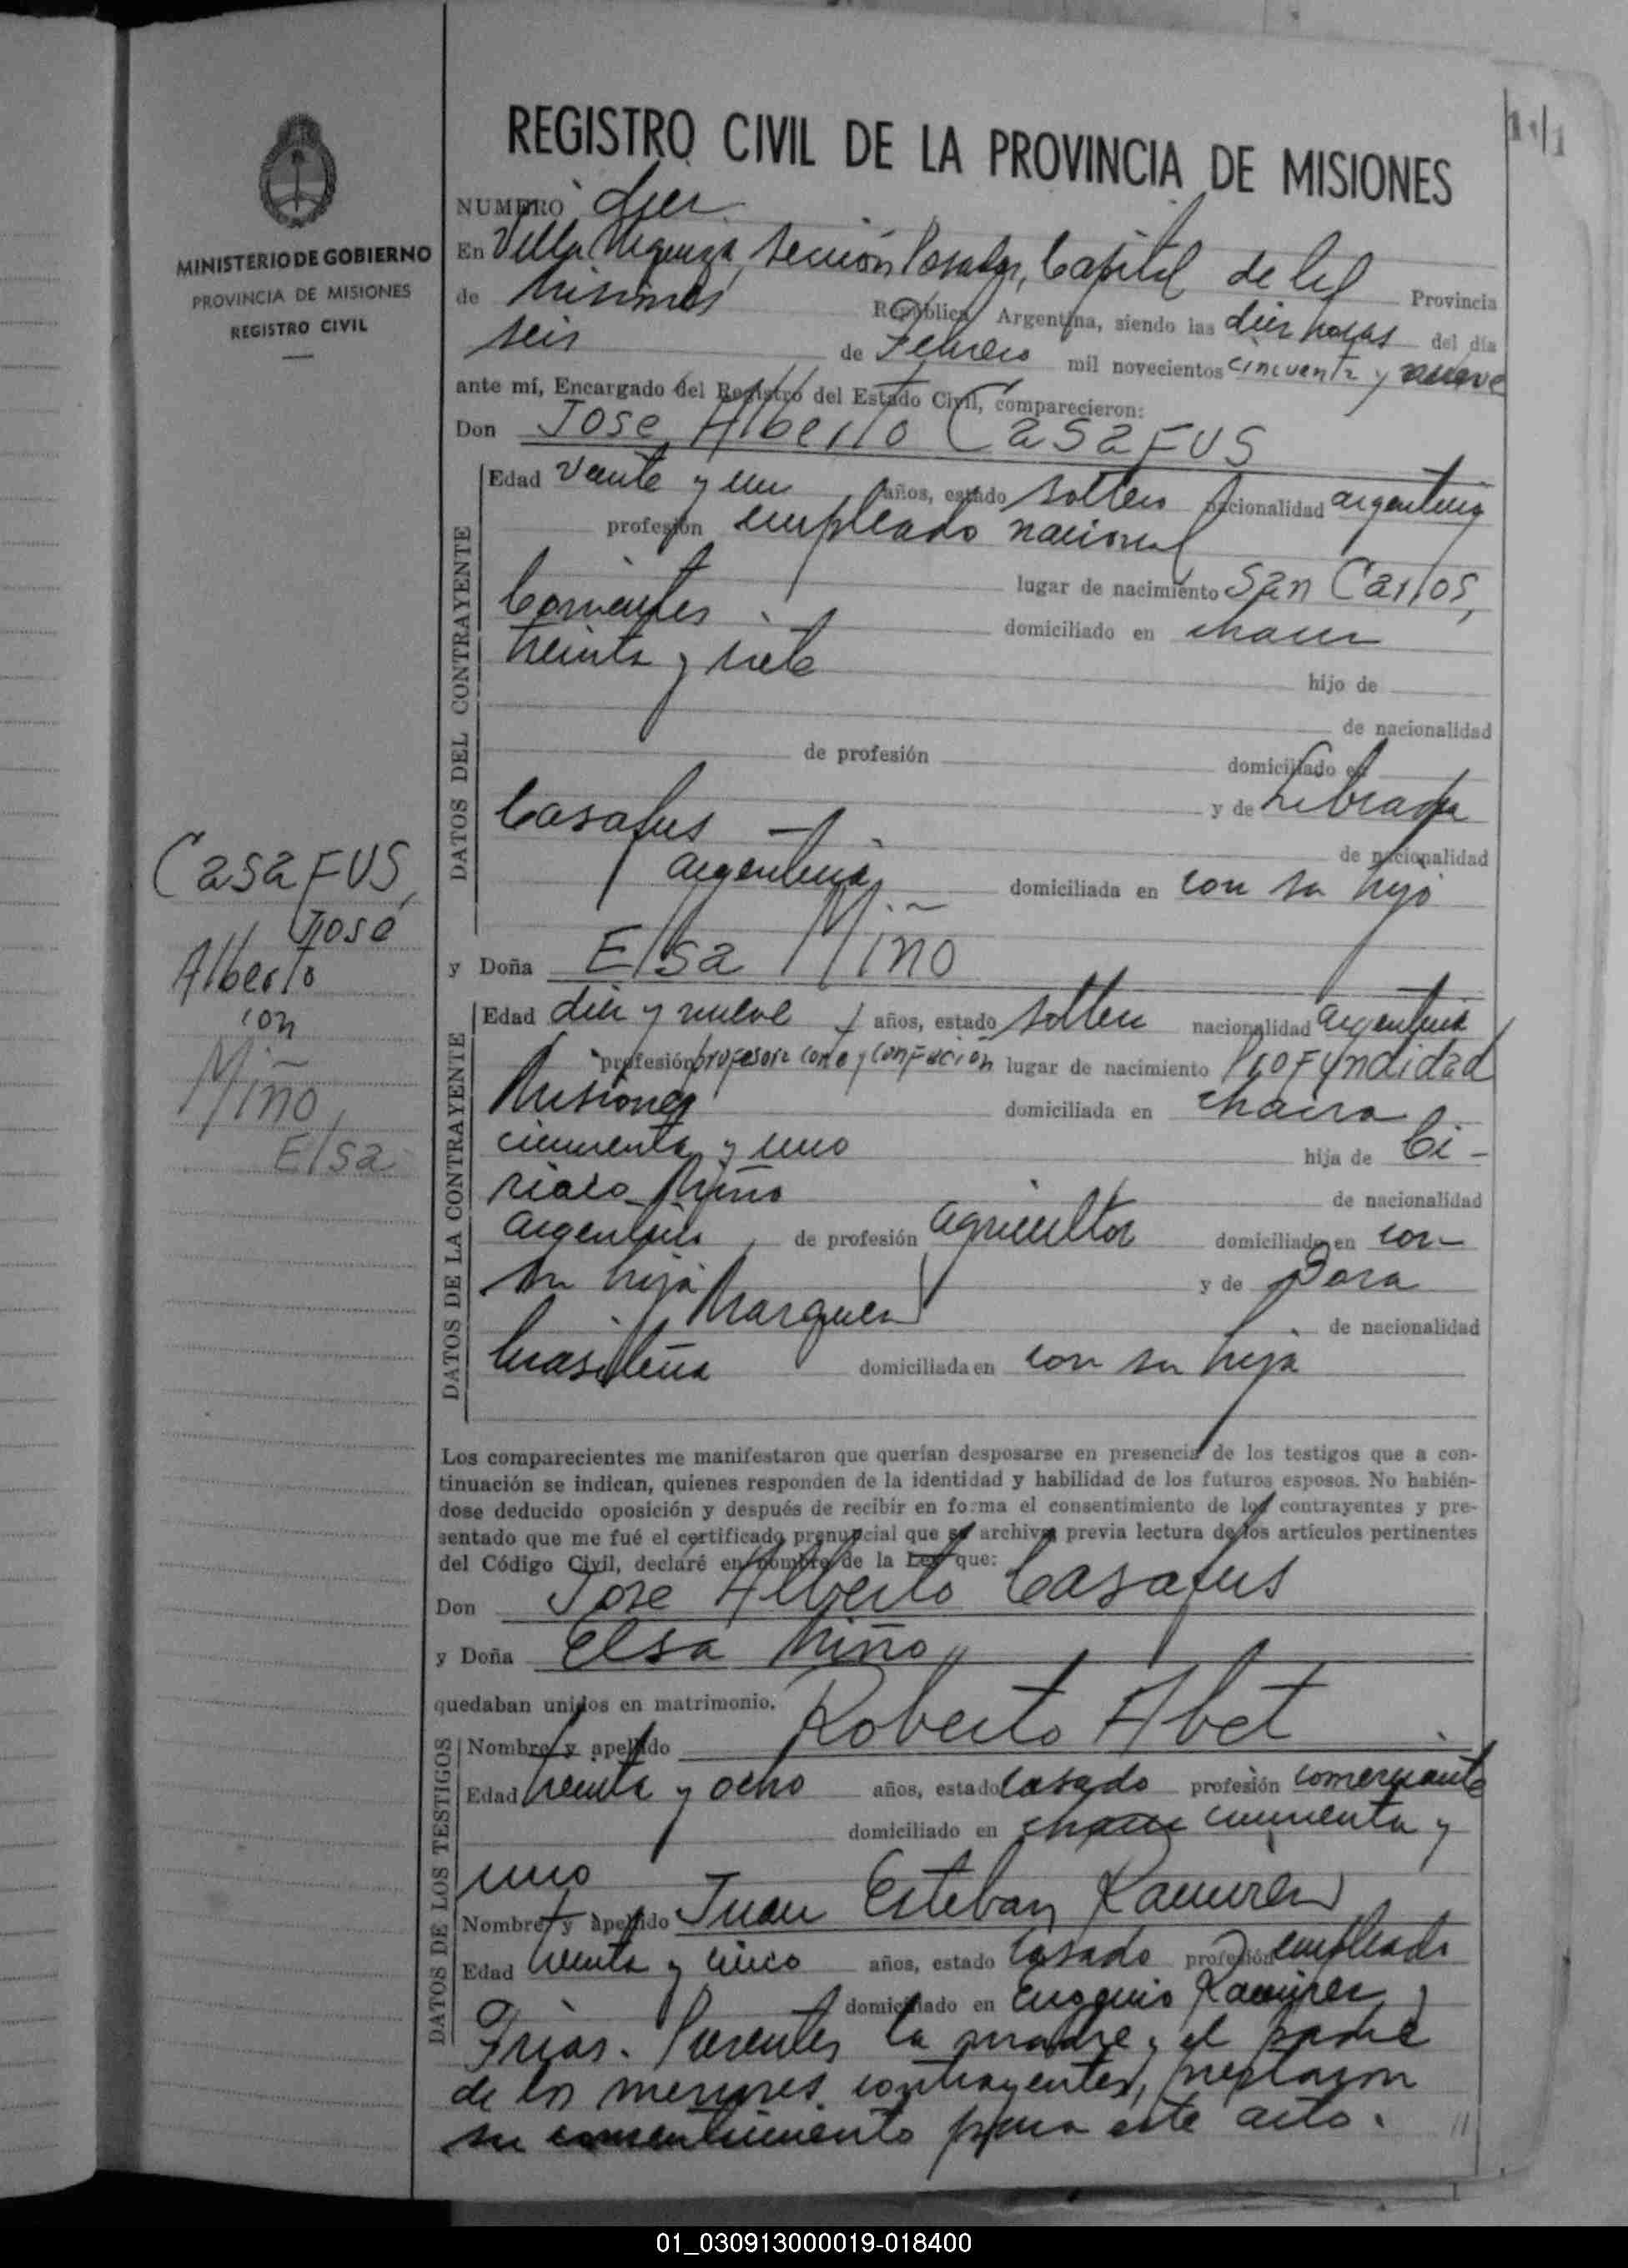 REGISTRO CIVIL DE LA PROVINCIA DE MISIONES
MINISTERIO DE GOBIERNO
PROVINCIA DE MISIONES
REGISTRO CIVIL
CASAFUS,
José
Alberto
con
Miño
Elsa
NUMERO diez
En Villa Urquiza, Sección Posadas, Capital de la Provincia
de Misiones República Argentina, siendo las diez horas del día
seis de Febrero mil novecientos cincuenta y nueve
ante mí, Encargado del Registro del Estado Civil, comparecieron:
Don José Alberto CASAFUS
DATOS DEL CONTRAYENTE
Edad veinte y un años, estado soltero nacionalidad argentina
profesión empleado nacional
lugar de nacimiento San Carlos,
Corrientes domiciliado en chacra
treinta y siete hijo de
de nacionalidad
de profesión domiciliado en
y de Librada
Casafus de nacionalidad
argentina domiciliada en con su hijo
y Doña Elsa Miño
DATOS DE LA CONTRAYENTE
Edad diez y nueve años, estado soltera nacionalidad argentina
profesión profesora corte y confección lugar de nacimiento Profundidad
Misiones domiciliada en chacra
cincuenta y uno hija de Ci-
riaco Miño de nacionalidad
argentina, de profesión agricultor domiciliado en con
su hija y de Dora
Marquez de nacionalidad
brasileña domiciliada en con su hija
Los comparecientes me manifestaron que querían desposarse en presencia de los testigos que a con-
tinuación se indican, quienes responden de la identidad y habilidad de los futuros esposos. No habién-
dose deducido oposición y después de recibir en forma el consentimiento de los contrayentes y pre-
sentado que me fué el certificado prenupcial que se archiva previa lectura de los artículos pertinentes
del Código Civil, declaré en nombre de la Ley que:
Don José Alberto Casafus
y Doña Elsa Miño
quedaban unidos en matrimonio.
DATOS DE LOS TESTIGOS
Nombre y apellido Roberto Abet
Edad treinta y ocho años, estado casado profesión comerciante
domiciliado en chacra cincuenta y
uno
Nombre y apellido Juan Esteban Ramirez
Edad treinta y cinco años, estado casado profesión empleado
domiciliado en Ramirez y
Frias. Presentes la madre y el padre
de los menores contrayentes, prestaron
su consentimiento para este acto.
01_030913000019-018400